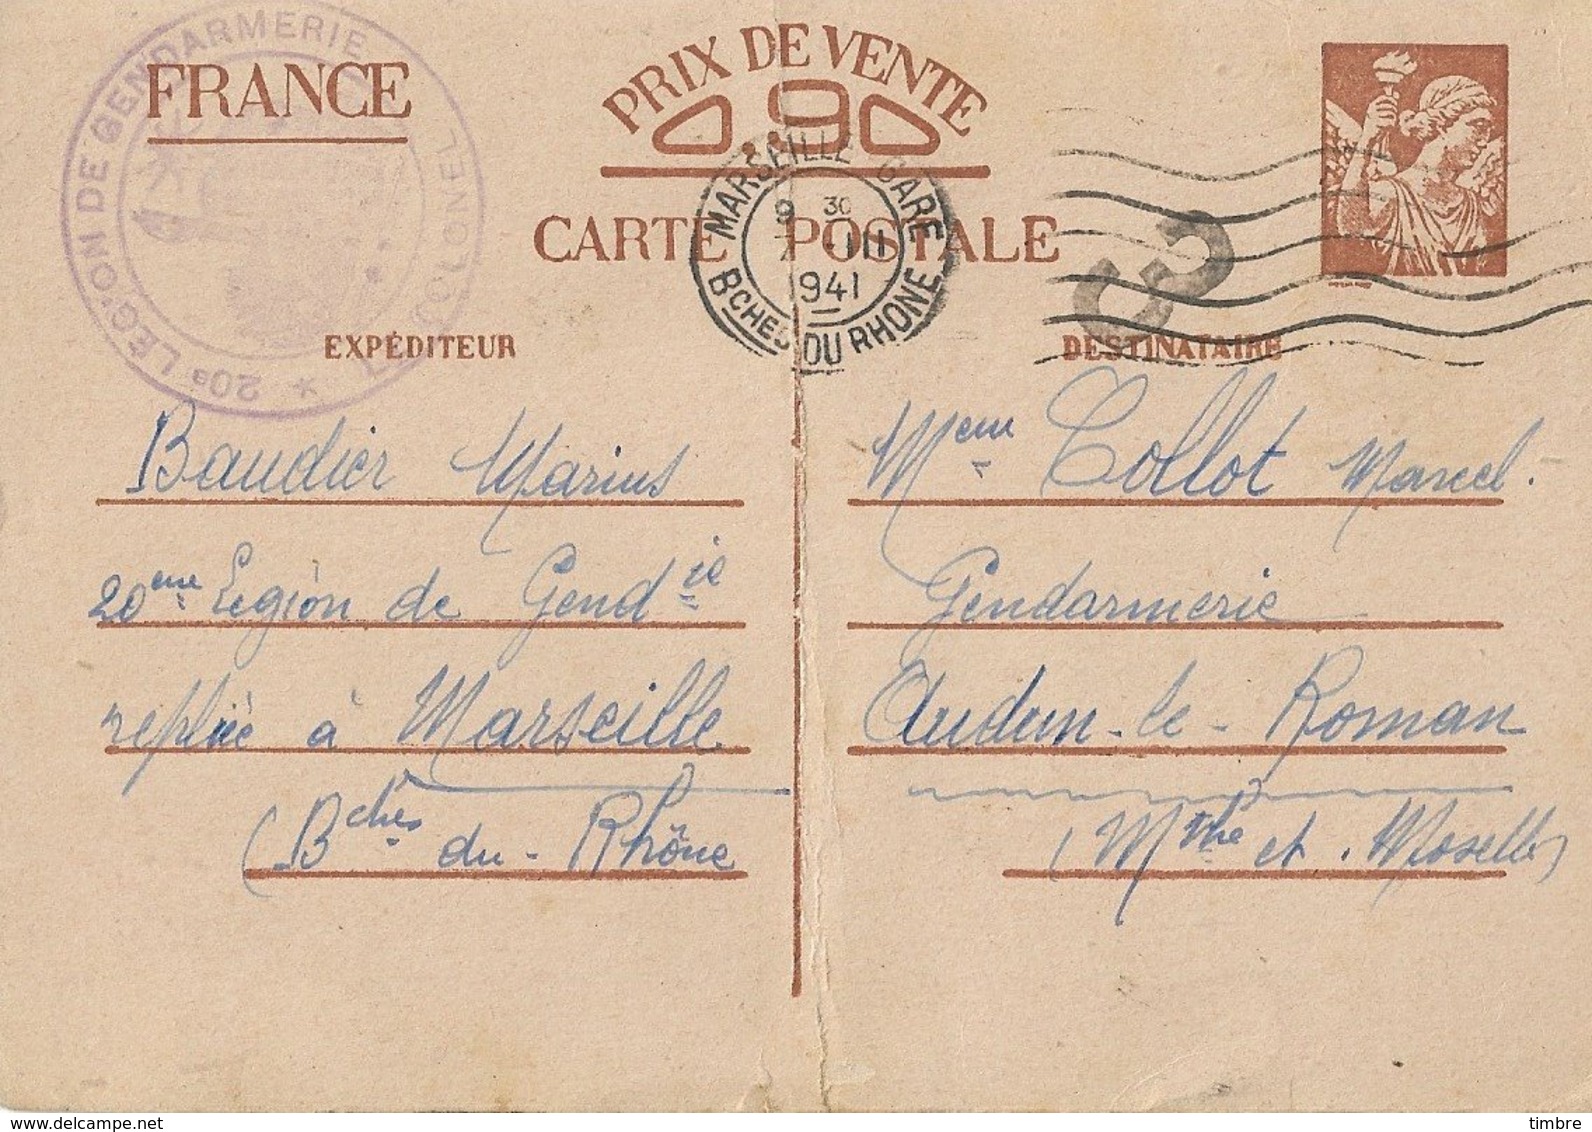 20e LÉGION DE GENDARMERIE
LE COLONEL
FRANCE
PRIX DE VENTE
0,90
CARTE POSTALE
MARSEILLE GARE
9 30
7 III
941
Bches DU RHONE
EXPÉDITEUR
Baudier Marius
20eme Légion de Gendie
repliée à Marseille
(Bches du-Rhône
DESTINATAIRE
Meme Collot Marcel.
Gendarmerie
Audun-le-Roman
(Mthe et Moselle)
delcampe.net
timbre